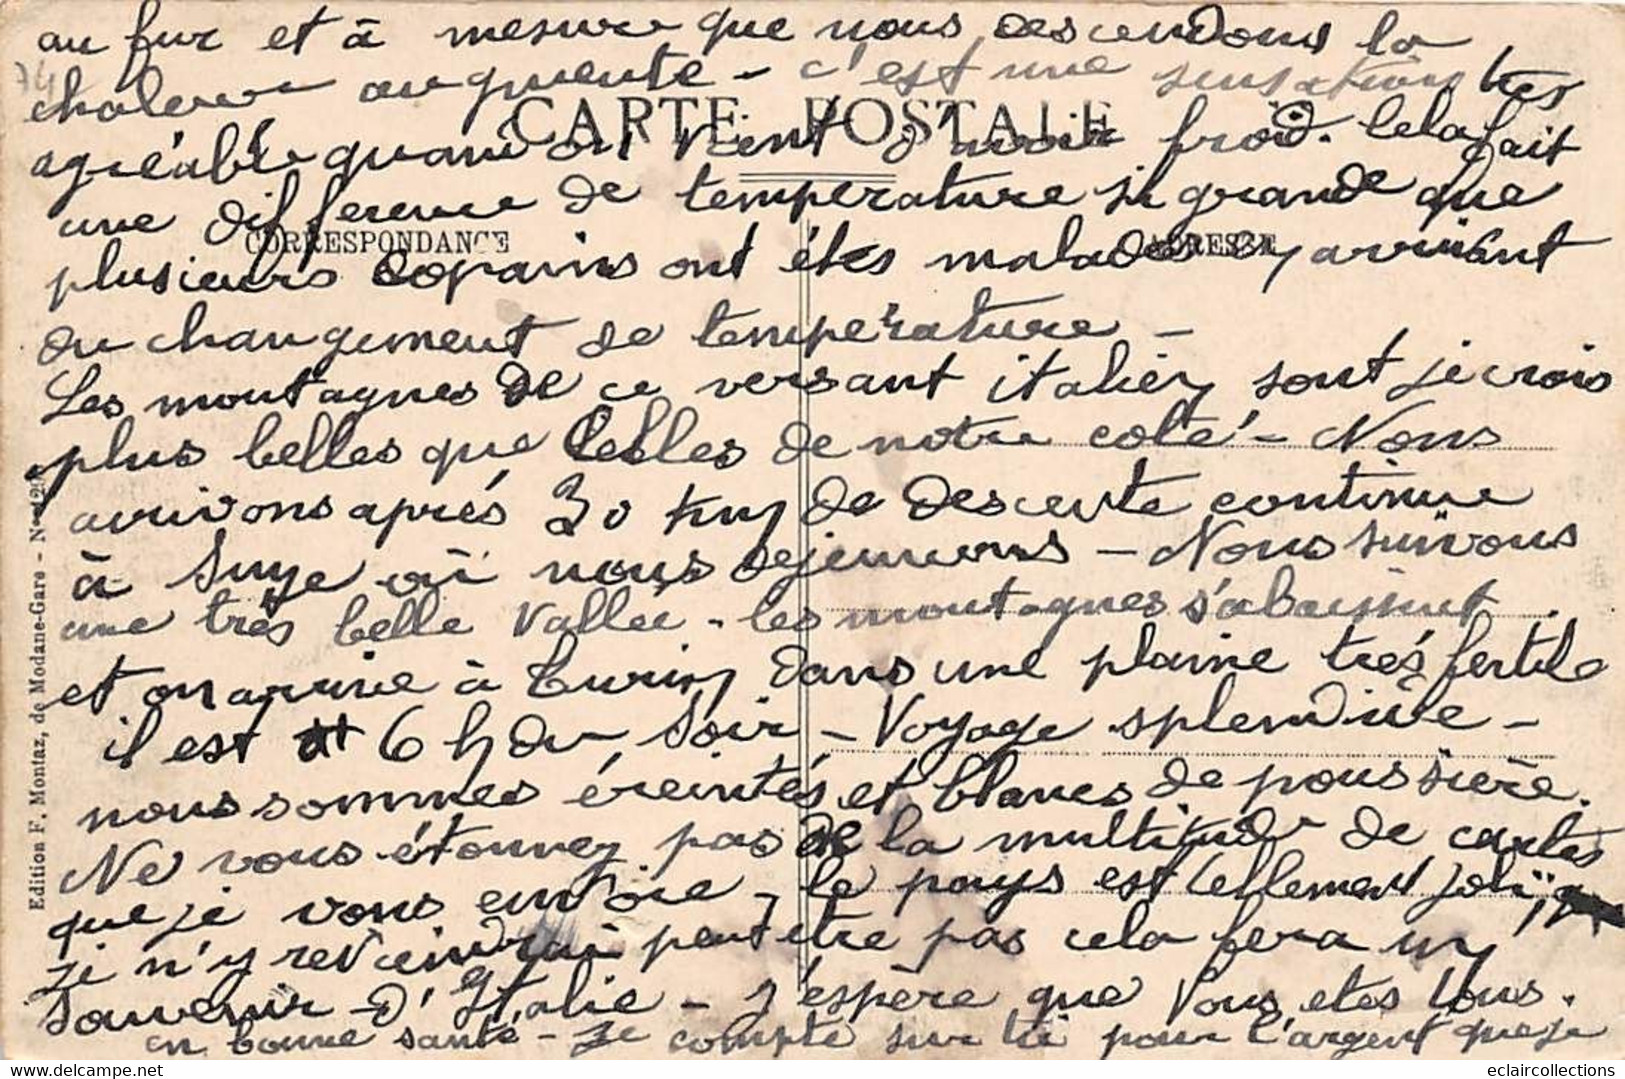 au fur et à mesure que nous descendons la
74
chaleur augmente - c'est une sensation très
CARTE POSTALE
agréable quand on vient d'avoir froid. Cela fait
une difference de temperature si grande que
CORRESPONDANCE
ADRESSE
plusieurs copains ont étés malades en arrivant
du changement de température -
Les montagnes de ce versant italien sont je crois
plus belles que celles de notre coté - Nous
arrivons aprés 30 km de descente continue
à Suze où nous dejeunons - Nous suivons
une très belle vallée - les montagnes s'abaissent
et on arrive à Turin dans une plaine trés fertile
il est 6 h du soir - Voyage splendide -
nous sommes éreintés et blancs de poussière.
Ne vous étonnez pas de la multitude de cartes
que je vous envoie, le pays est tellement joli,
je n'y reviendrai peut etre pas cela fera un
souvenir d'Italie - J'espère que vous etes tous.
en bonne santé - Je compte sur toi pour l'argent que je
Edition F. Montaz, de Modane-Gare - N°
eclaircollections